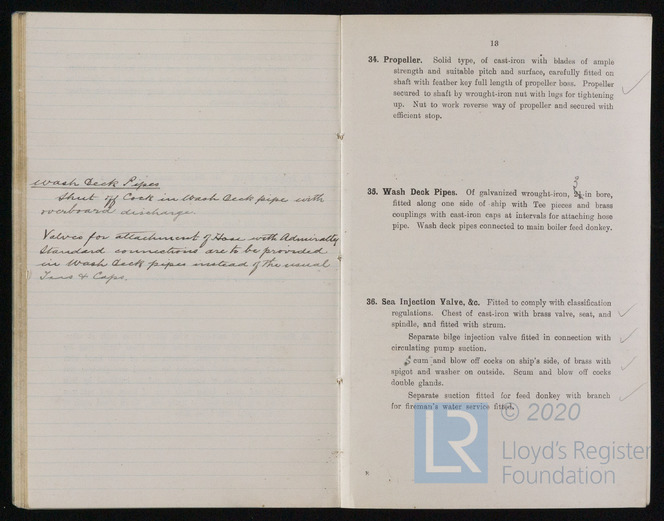 Wash Deck Pipes
Shut off Cock in Wash Deck pipe with
overboard discharge.
Valves for attachment of Hose with Admiralty
Standard connections are to be provided
in Wash Deck pipes instead of the usual
Tees & Caps.
13
34. Propeller. Solid type, of cast-iron with blades of ample
strength and suitable pitch and surface, carefully fitted on
shaft with feather key full length of propeller boss. Propeller
secured to shaft by wrought-iron nut with lugs for tightening
up. Nut to work reverse way of propeller and secured with
efficient stop.
3
35. Wash Deck Pipes. Of galvanized wrought-iron, 2½-in bore,
fitted along one side of ship with Tee pieces and brass
couplings with cast-iron caps at intervals for attaching hose
pipe. Wash deck pipes connected to main boiler feed donkey.
36. Sea Injection Valve, &c. Fitted to comply with classification
regulations. Chest of cast-iron with brass valve, seat, and
spindle, and fitted with strum.
Separate bilge injection valve fitted in connection with
circulating pump suction.
Scum and blow off cocks on ship's side, of brass with
spigot and washer on outside. Scum and blow off cocks
double glands.
Separate suction fitted for feed donkey with branch
for fireman's water service fitted.
LR © 2020
Lloyd's Register
Foundation